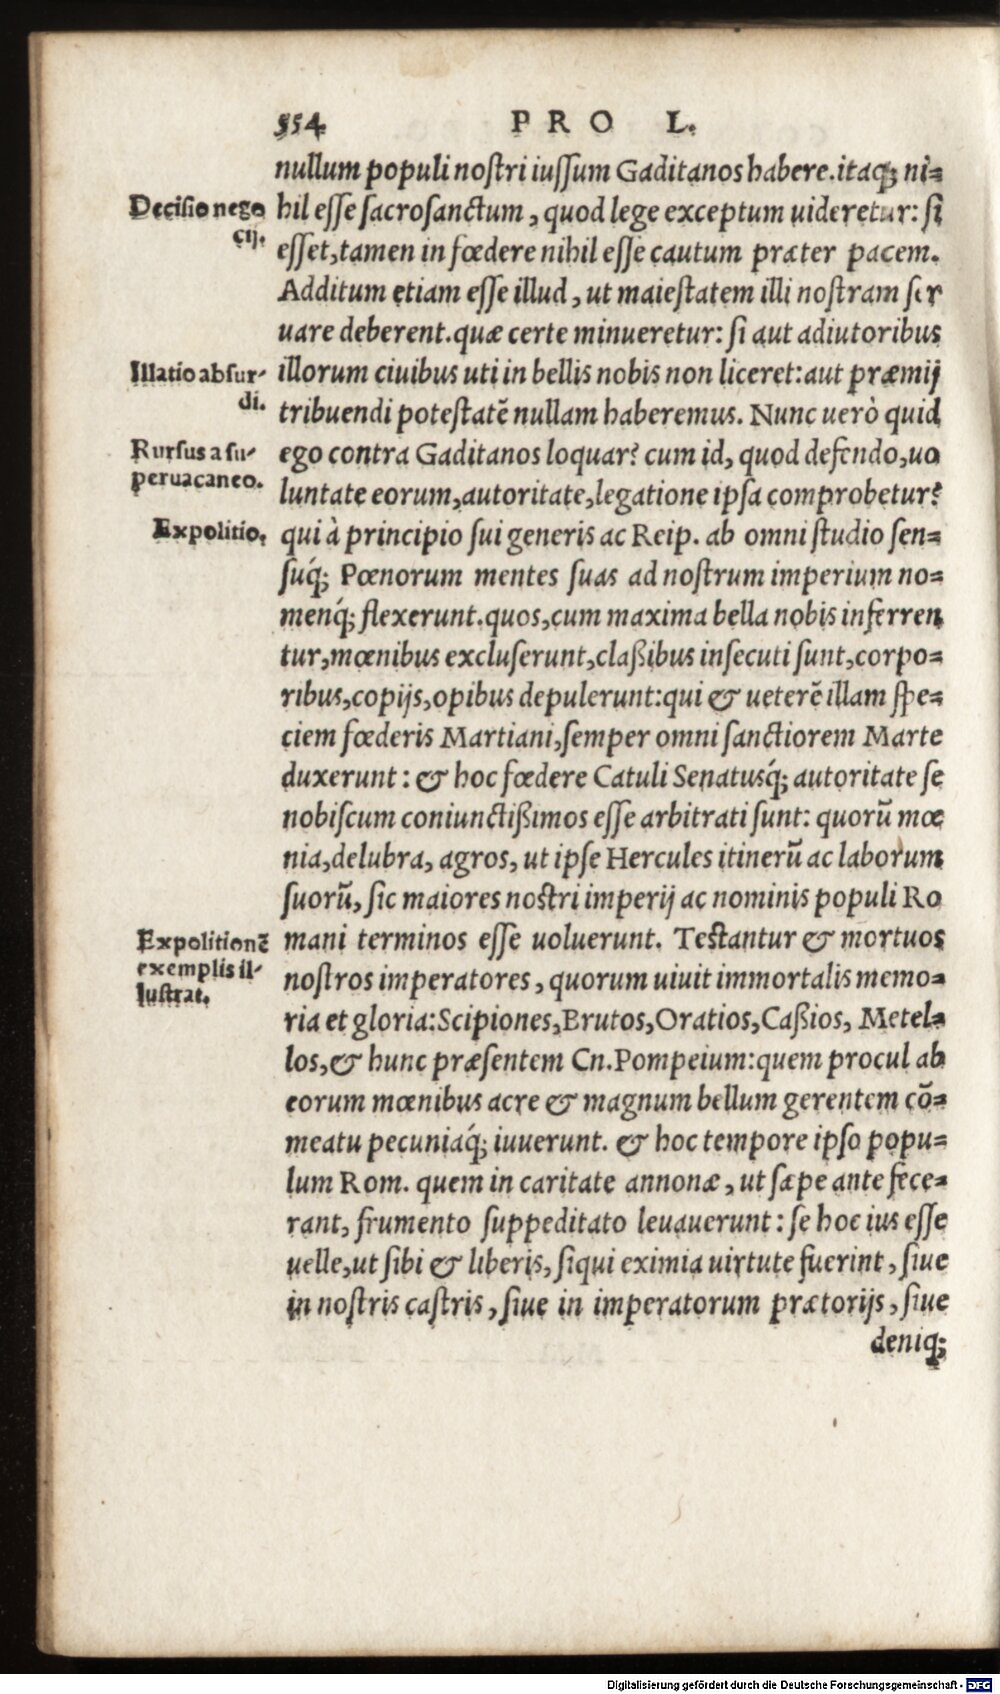 554 PRO L.
nullum populi nostri iussum Gaditanos habere. itaq; ni=
Decisio nego
cij.
hil esse sacrosanctum, quod lege exceptum uideretur: si
esset, tamen in fœdere nihil esse cautum præter pacem.
Additum etiam esse illud, ut maiestatem illi nostram ser
uare deberent. quæ certe minueretur: si aut adiutoribus
Illatio absur-
di.
illorum ciuibus uti in bellis nobis non liceret: aut præmij
tribuendi potestatē nullam haberemus. Nunc uerò quid
Rursus a su-
peruacaneo.
ego contra Gaditanos loquar? cum id, quod defendo, uo
luntate eorum, autoritate, legatione ipsa comprobetur?
Expolitio.
qui à principio sui generis ac Reip. ab omni studio sen=
suq́; Pœnorum mentes suas ad nostrum imperium no=
menq́; flexerunt. quos, cum maxima bella nobis inferren
tur, mœnibus excluserunt, claßibus insecuti sunt, corpo=
ribus, copijs, opibus depulerunt: qui & ueterē illam spe=
ciem fœderis Martiani, semper omni sanctiorem Marte
duxerunt: & hoc fœdere Catuli Senatusq́; autoritate se
nobiscum coniunctißimos esse arbitrati sunt: quorū mœ
nia, delubra, agros, ut ipse Hercules itinerū ac laborum
suorū, sic maiores nostri imperij ac nominis populi Ro
Expolitionē
exemplis il-
lustrat.
mani terminos esse uoluerunt. Testantur & mortuos
nostros imperatores, quorum uiuit immortalis memo=
ria et gloria: Scipiones, Brutos, Oratios, Caßios, Metel=
los, & hunc præsentem Cn. Pompeium: quem procul ab
eorum mœnibus acre & magnum bellum gerentem cō=
meatu pecuniaq́; iuuerunt. & hoc tempore ipso popu=
lum Rom. quem in caritate annonæ, ut sæpe ante fece=
rant, frumento suppeditato leuauerunt: se hoc ius esse
uelle, ut sibi & liberis, siqui eximia uirtute fuerint, siue
in nostris castris, siue in imperatorum prætorijs, siue
deniq;
Digitalisierung gefördert durch die Deutsche Forschungsgemeinschaft - DFG